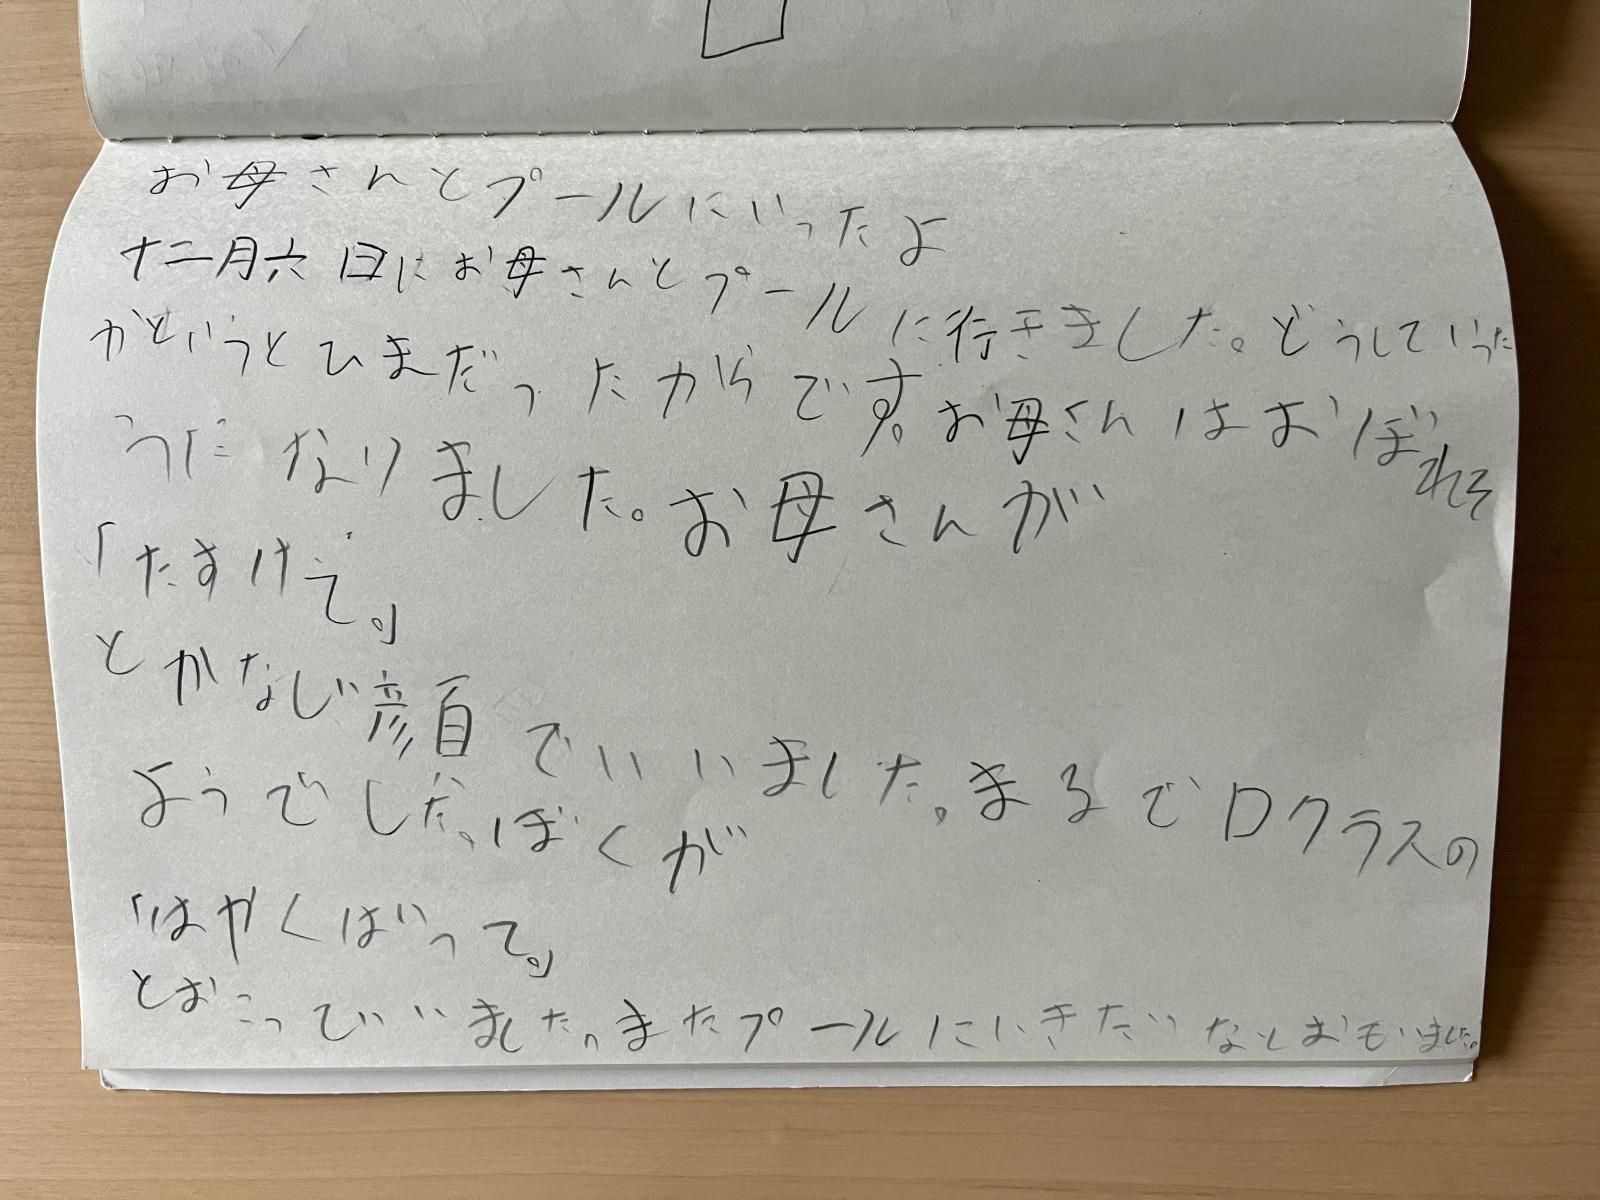 お母さんとプールにいったよ
十二月六日にお母さんとプールに行きました。どうしていった
かというとひまだったからです。お母さんはおぼれそ
うになりました。お母さんが
「たすけて。」
とかなじい顔でいいました。まるでロクラスの
ようでした。ぼくが
「はやくばいって。」
とおこっていいました。またプールにいきたいなとおもいました。